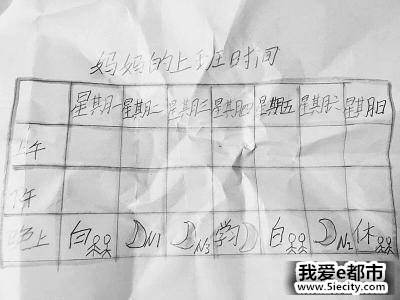 妈妈的上班时间
星期一 星期二 星期三 星期四 星期五 星期六 星期日
上午
下午
晚上 白 N1 N3 学习 白 N2 休
我爱e都市
www.5iecity.com